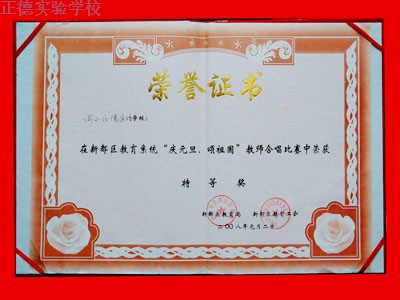 正德实验学校
荣誉证书
学校：
在新都区教育系统“庆元旦、颂祖国”教师合唱比赛中荣获
特等奖
新都区教育局 新都区教育工会
二00八年元月二日